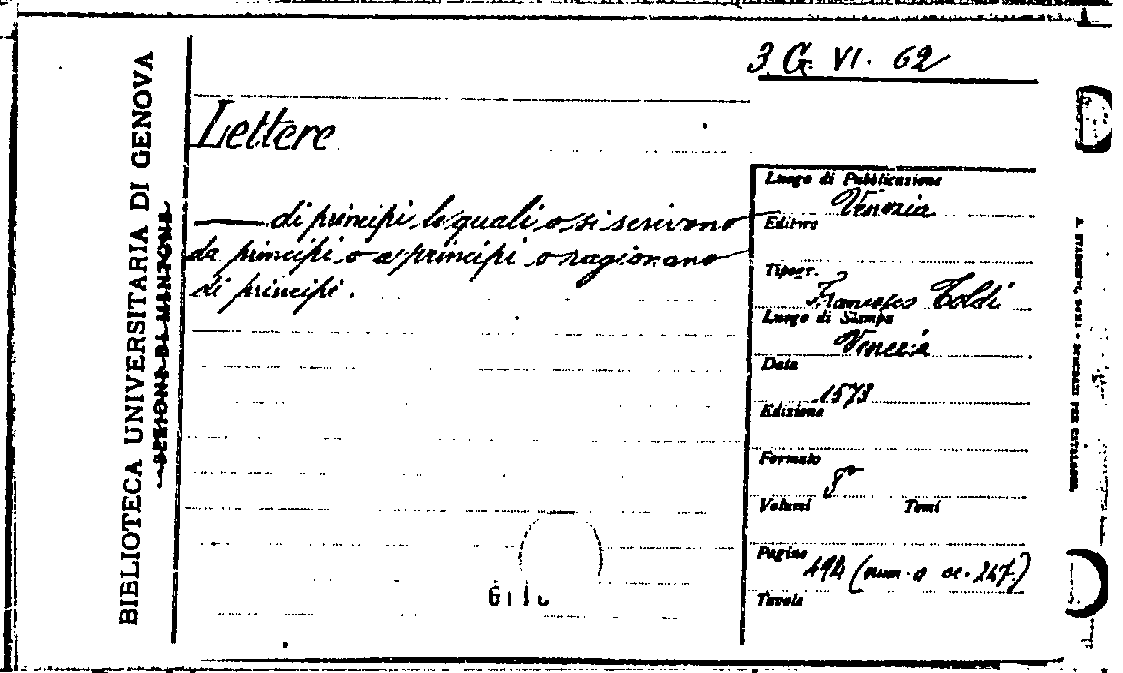 3 G. VI. 62
BIBLIOTECA UNIVERSITARIA DI GENOVA
Lettere
di principi le quali o si scrivono
da principi o a principi o ragionano
di principi.
Luogo di Pubblicazione
Venezia
Editore
Tipogr.
Francesco Toldi
Luogo di Stampa
Venezia
Data
1573
Edizione
Formato
8º
Volumi Tomi
Pagine
494 (num. a cc. 247.)
Tavole